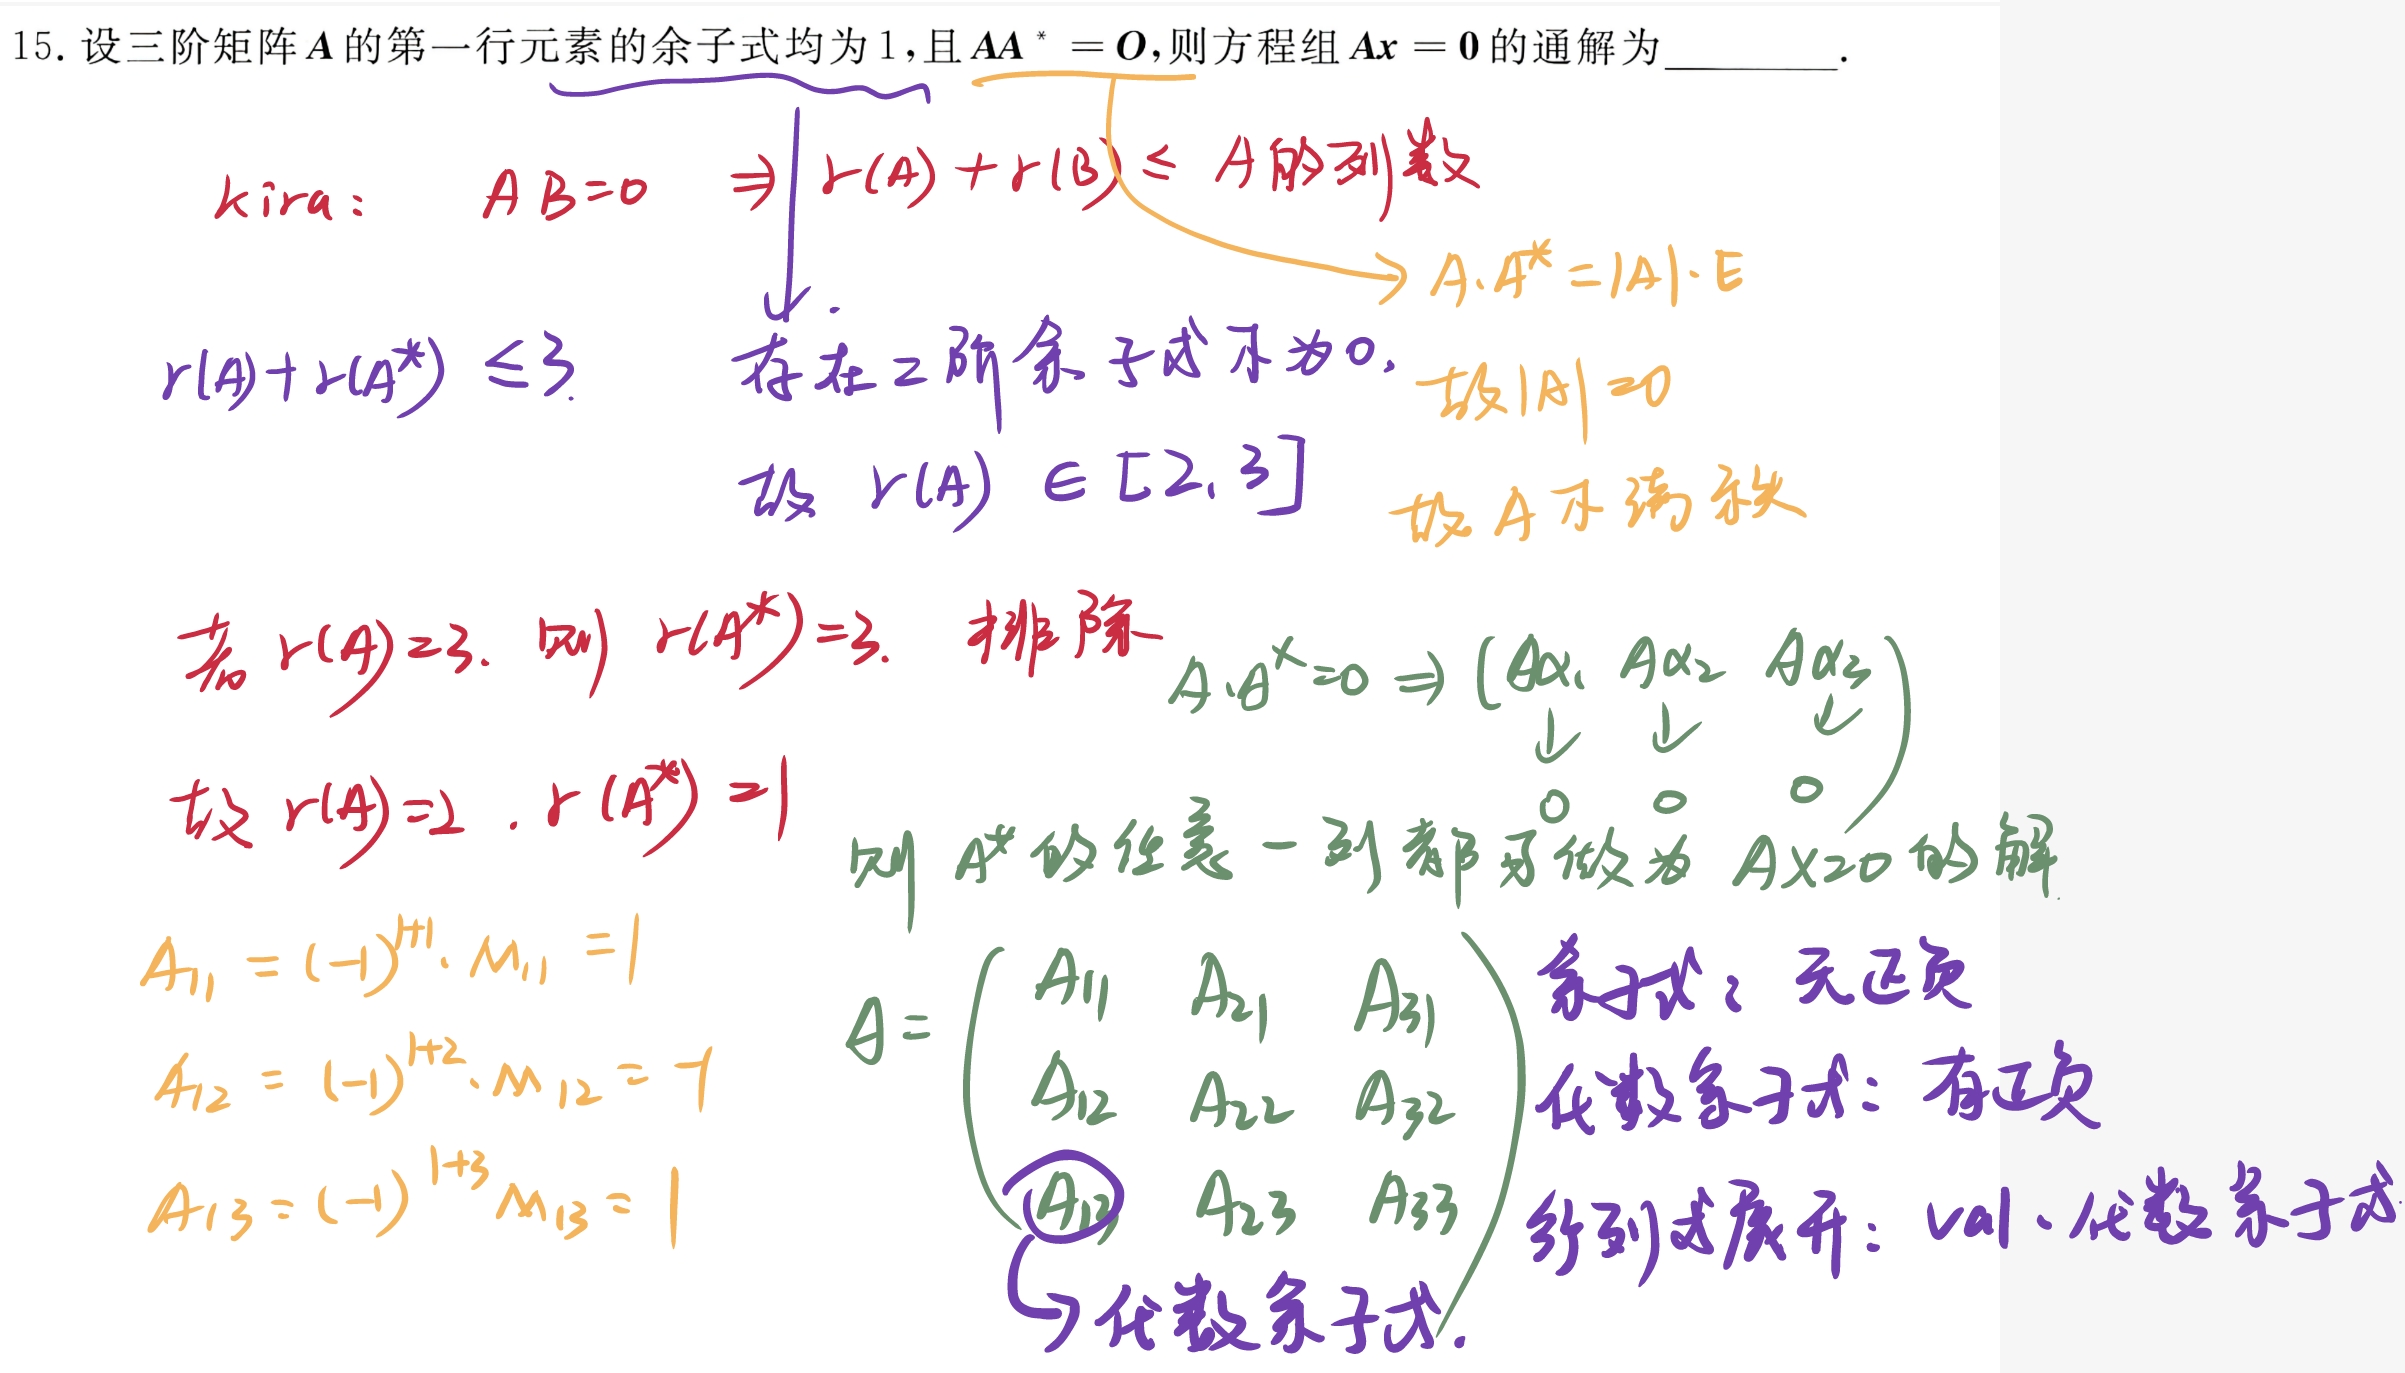 15. 设三阶矩阵 A 的第一行元素的余子式均为 1,且 AA* = O,则方程组 Ax = 0 的通解为________.
kira: AB=0 ⇒ r(A)+r(B) ≤ A的列数
A·A*=|A|·E
r(A)+r(A*) ≤3. 存在2阶余子式不为0,
故|A|=0
故 r(A) ∈ [2,3]
故A不满秩
若 r(A)=3. 则 r(A*)=3. 排除
A·A*=0 ⇒ (Aα1 Aα2 Aα3)
↓ ↓ ↓
0 0 0
故 r(A)=2 . r(A*)=1
则 A*的任意一列都可做为 AX=0的解.
A11 = (-1)^1+1 · M11 = 1
A12 = (-1)^1+2 · M12 = -1
A13 = (-1)^1+3 M13 = 1
A= ( A11 A21 A31
A12 A22 A32
A13 A23 A33 )
→代数余子式.
余子式: 无正负
代数余子式: 有正负
行列式展开: val·代数余子式